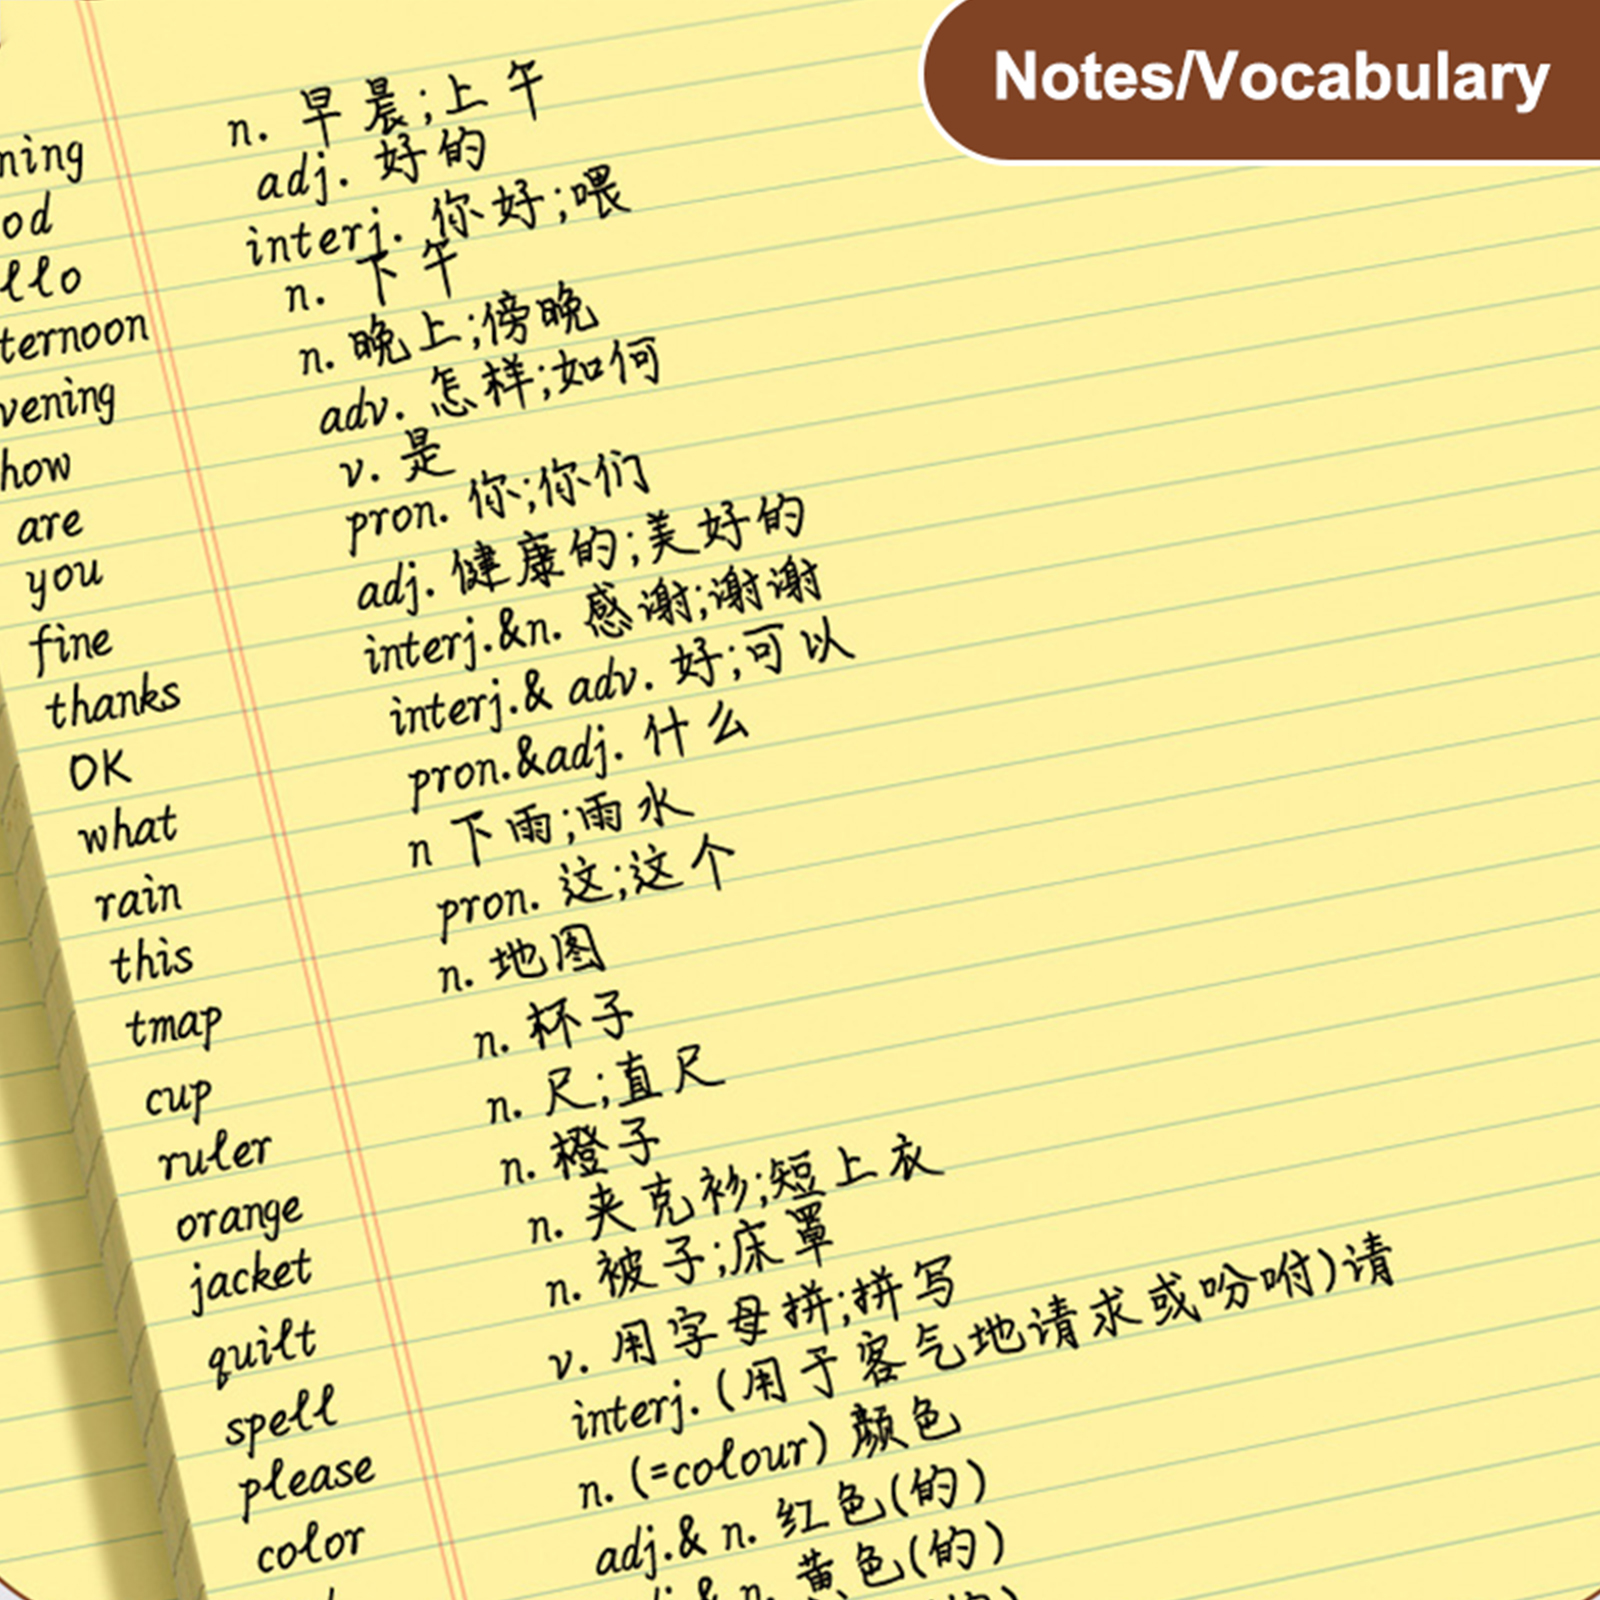 Notes/Vocabulary
ning n. 早晨;上午
od adj. 好的
llo interj. 你好;喂
ternoon n. 下午
vening n. 晚上;傍晚
how adv. 怎样;如何
are v. 是
you pron. 你;你们
fine adj. 健康的;美好的
thanks interj.&n. 感谢;谢谢
OK interj.& adv. 好;可以
what pron.&adj. 什么
rain n 下雨;雨水
this pron. 这;这个
tmap n. 地图
cup n. 杯子
ruler n. 尺;直尺
orange n. 橙子
jacket n. 夹克衫;短上衣
quilt n. 被子;床罩
spell v. 用字母拼;拼写
please interj. (用于客气地请求或吩咐)请
color n. (=colour) 颜色
adj.& n. 红色(的)
& n. 黄色(的)